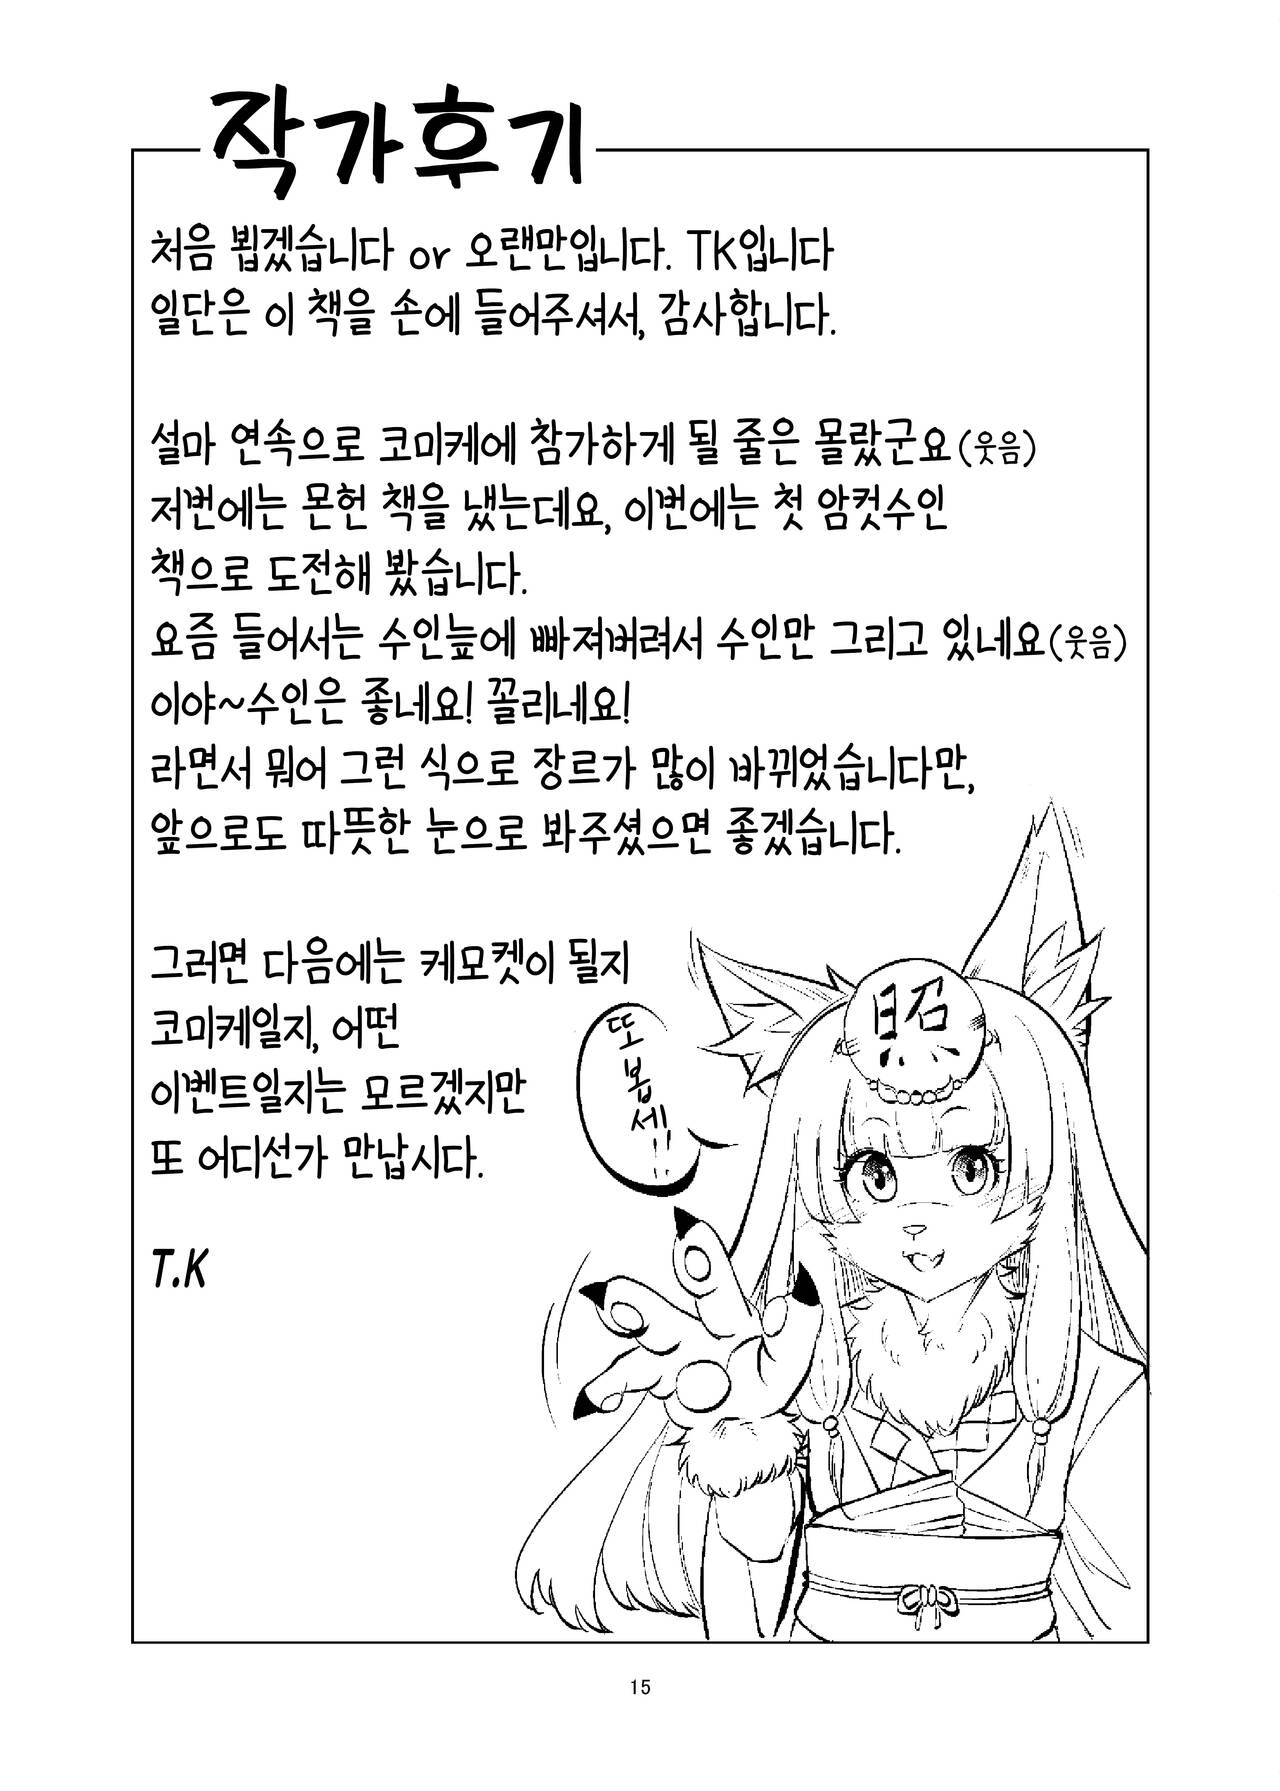 작가후기
처음 뵙겠습니다 or 오랜만입니다. TK입니다
일단은 이 책을 손에 들어주셔서, 감사합니다.
설마 연속으로 코미케에 참가하게 될 줄은 몰랐군요(웃음)
저번에는 몬헌 책을 냈는데요, 이번에는 첫 암컷수인
책으로 도전해 봤습니다.
요즘 들어서는 수인늪에 빠져버려서 수인만 그리고 있네요(웃음)
이야~수인은 좋네요! 꼴리네요!
라면서 뭐어 그런 식으로 장르가 많이 바뀌었습니다만,
앞으로도 따뜻한 눈으로 봐주셨으면 좋겠습니다.
그러면 다음에는 케모켓이 될지
코미케일지, 어떤
이벤트일지는 모르겠지만
또 어디선가 만납시다.
T.K
또
봅세!!
照
15